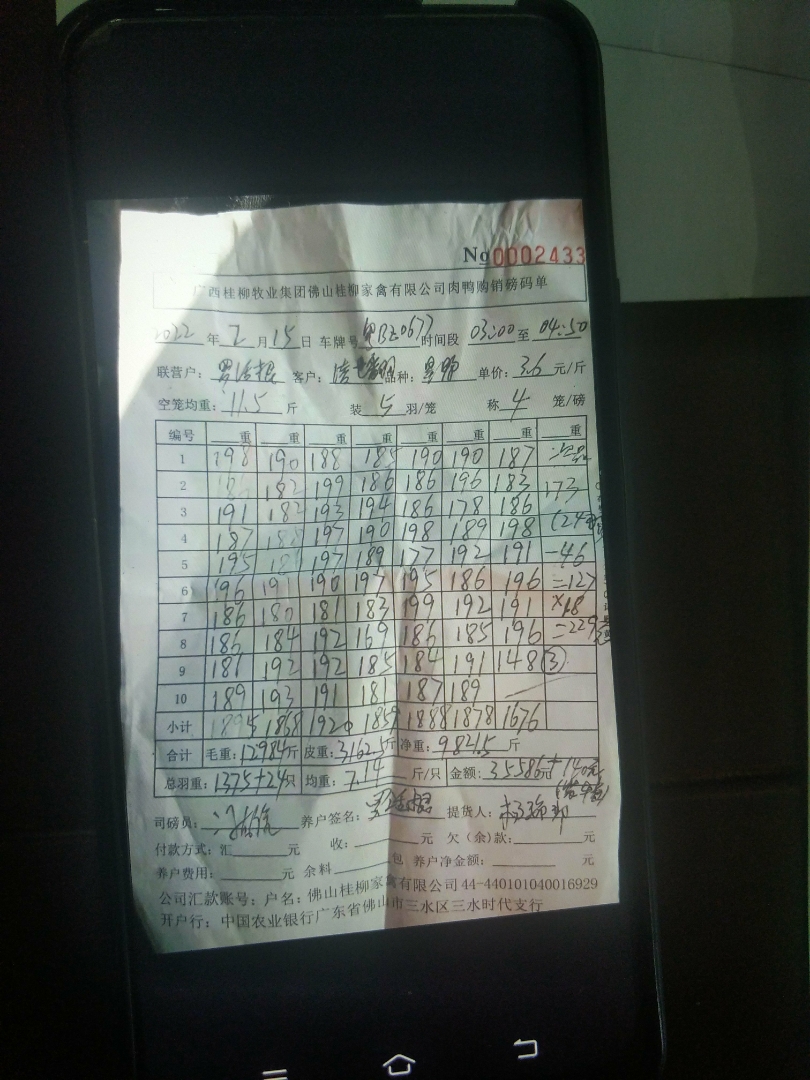 No 0002433
广西桂柳牧业集团佛山桂柳家禽有限公司肉鸭购销磅码单
2022 年 7 月 15 日 车牌号 BZ0677 时间段 03:00 至 04:50
联营户: 客户: 品种: 单价: 3.6 元/斤
空笼均重: 11.5 斤 装 5 羽/笼 称 4 笼/磅
编号 重 重 重 重 重 重 重 重
1 198 190 188 185 190 190 187
2 182 199 186 186 196 183 173
3 191 182 193 194 186 178 186 (24
4 187 188 197 190 198 189 198 -46
5 195 197 189 177 192 191 =127
6 196 191 190 197 195 186 196 ×1.8
7 186 180 181 183 199 192 191 =229
8 186 184 192 169 186 185 196
9 181 192 192 185 184 191 148 ③
10 189 193 191 181 187 189
小计 1895 1868 1920 1859 1888 1878 1676
合计 毛重: 12984斤 皮重: 3162.5斤 净重: 9821.5 斤
总羽重: 1375+24只 均重: 7.14 斤/只 金额: 35586元+140元
司磅员: 养户签名: 提货人:
付款方式: 汇 元 收: 元 欠(余)款: 元
养户费用: 元 余料 包 养户净金额: 元
公司汇款账号: 户名: 佛山桂柳家禽有限公司 44-440101040016929
开户行: 中国农业银行广东省佛山市三水区三水时代支行